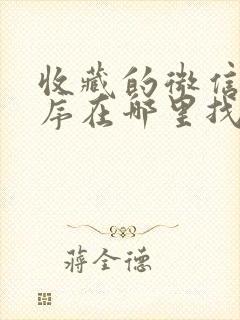 收藏的微信
序在哪里找
蒋全德